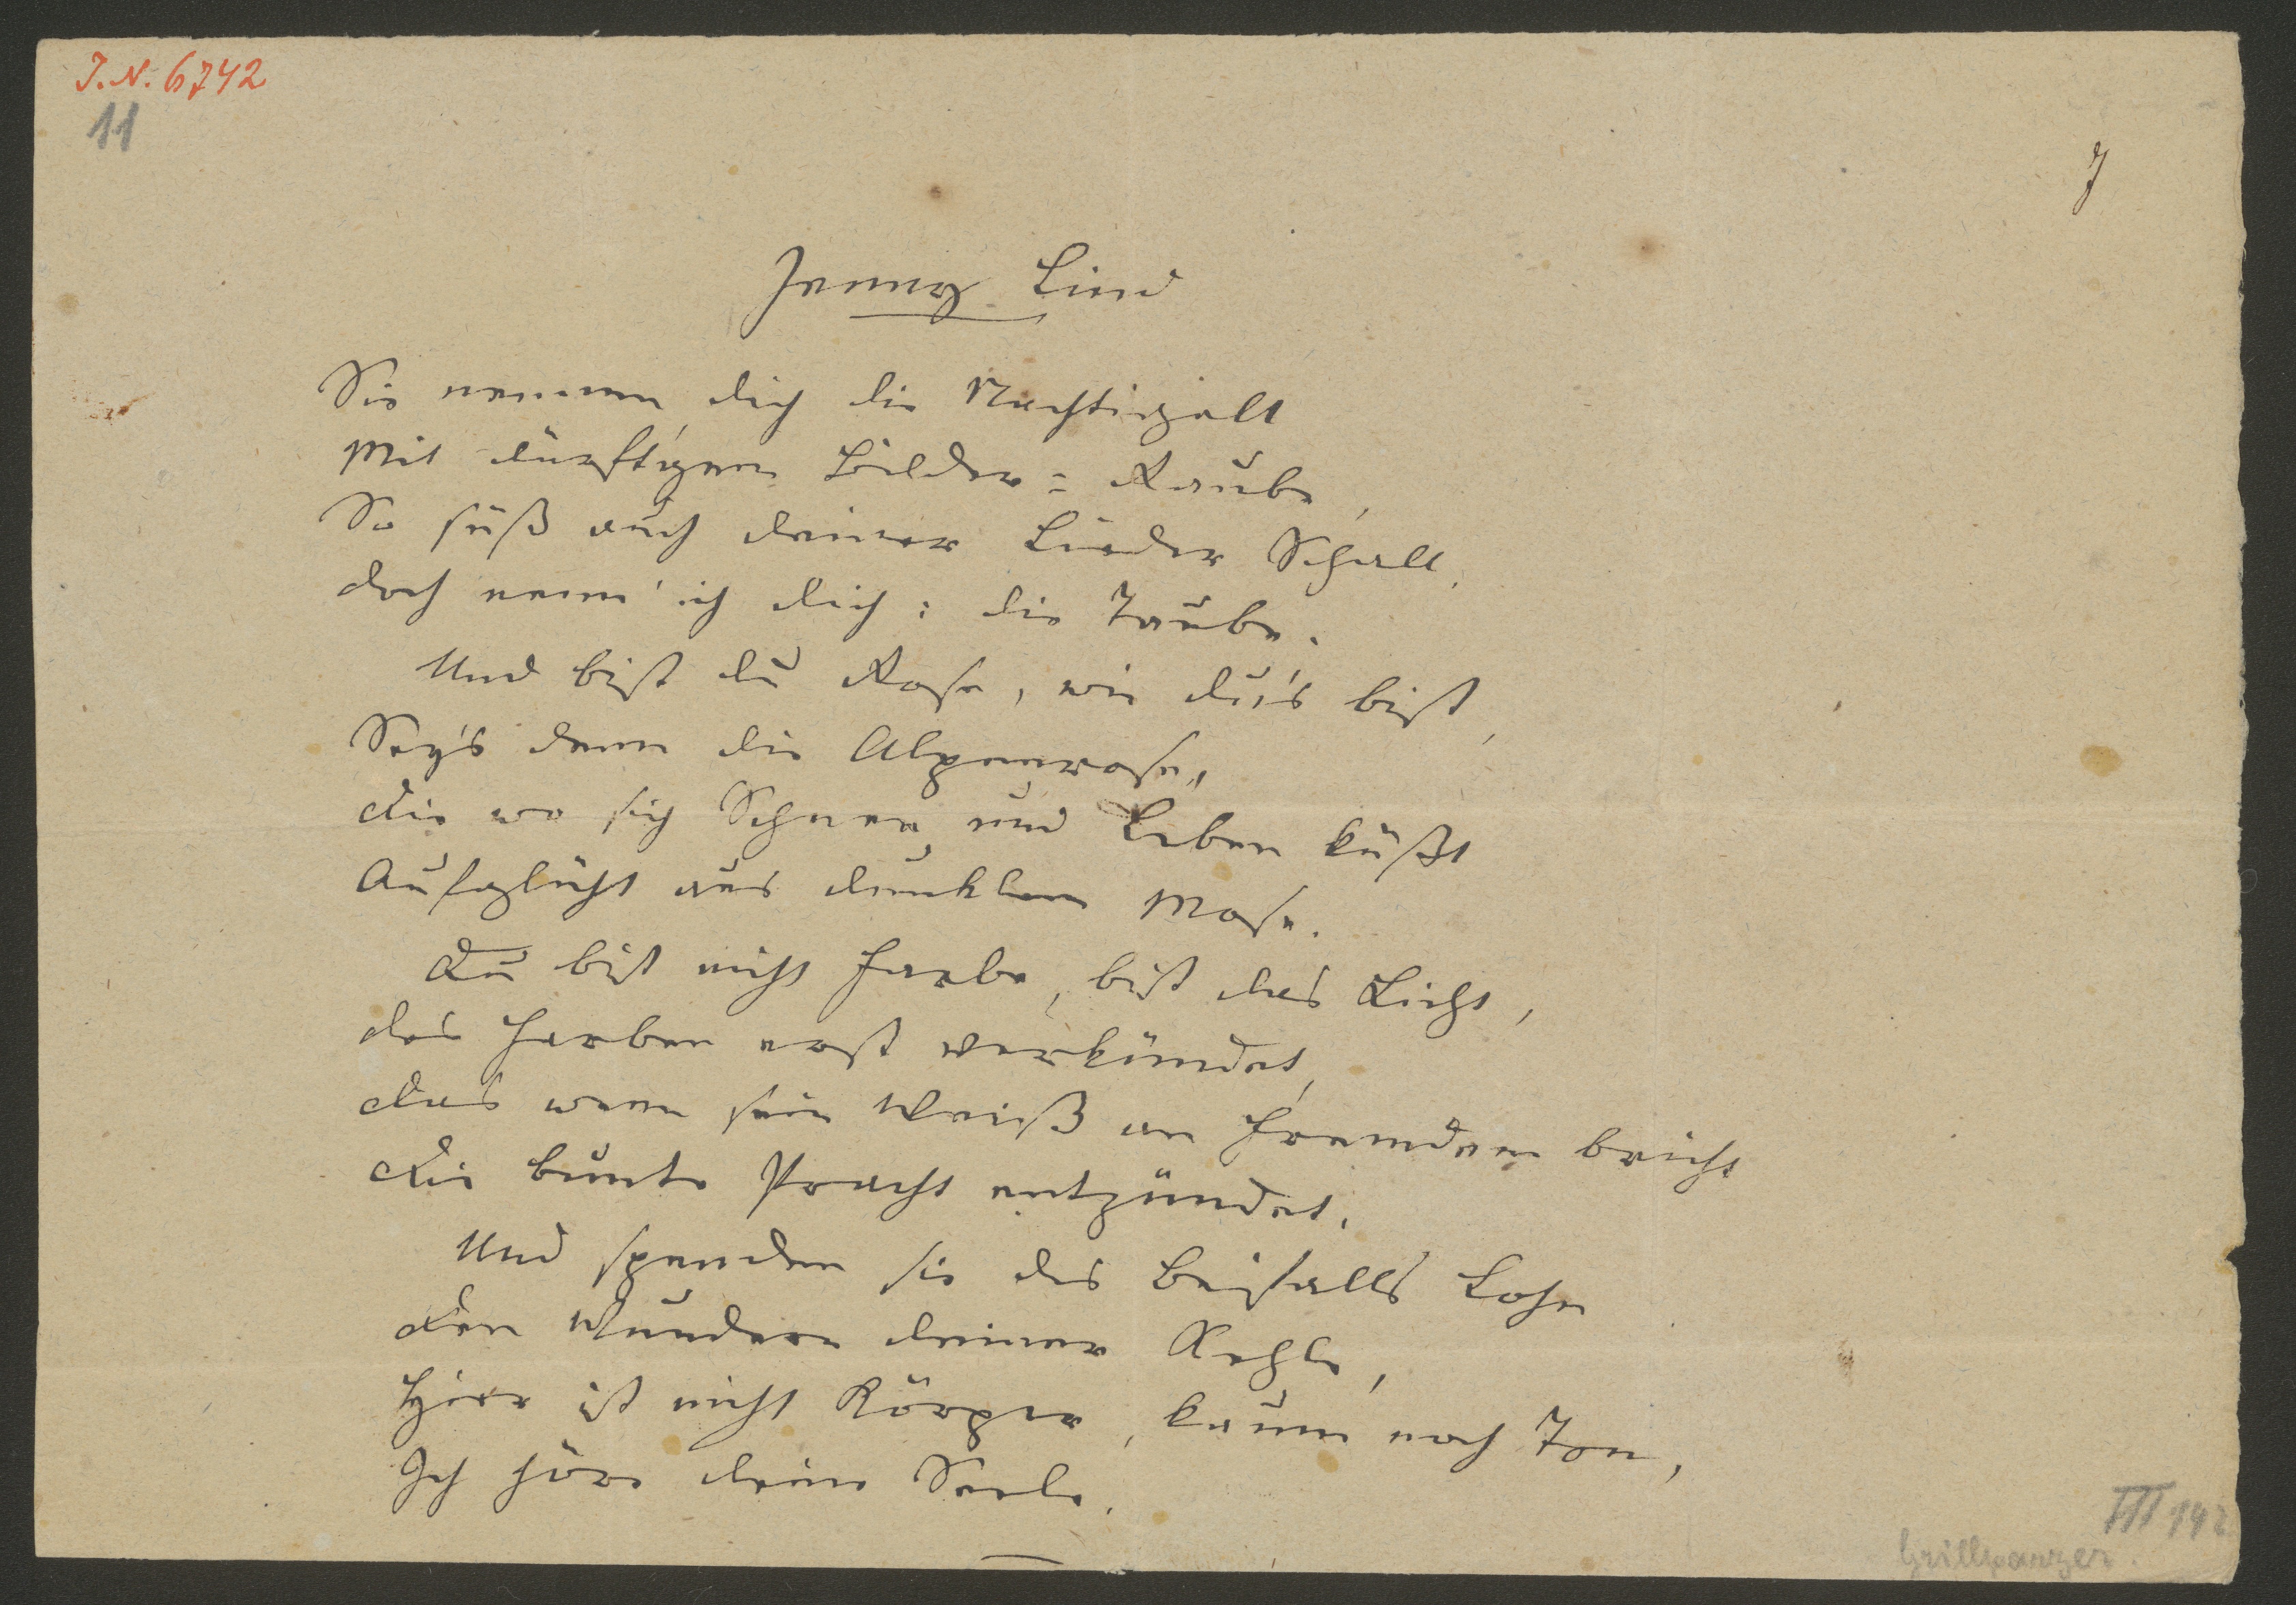 I.N. 6742
11
7
Jenny Lind
Sie nennen dich die Nachtigall
Mit dürftigem Bilder=Raube,
So süß auch deiner Lieder Schall,
doch nenn' ich dich: die Taube.
Und bist du Rose, wie du's bist,
Sey's denn die Alpenrose,
die wo sich Schnee und Leben küßt
Aufglüht aus dunklem Mose.
Du bist nicht Farbe, bist das Licht,
das Farben erst verkündet,
das wenn sein Weiß an Fremdem bricht
die bunte Pracht entzündet.
Und spenden sie des Beifalls Lohn
den Wundern deiner Kehle,
Hier ist nicht Körper, kaum noch Ton,
Ich höre deine Seele.
III 142
Grillparzer.